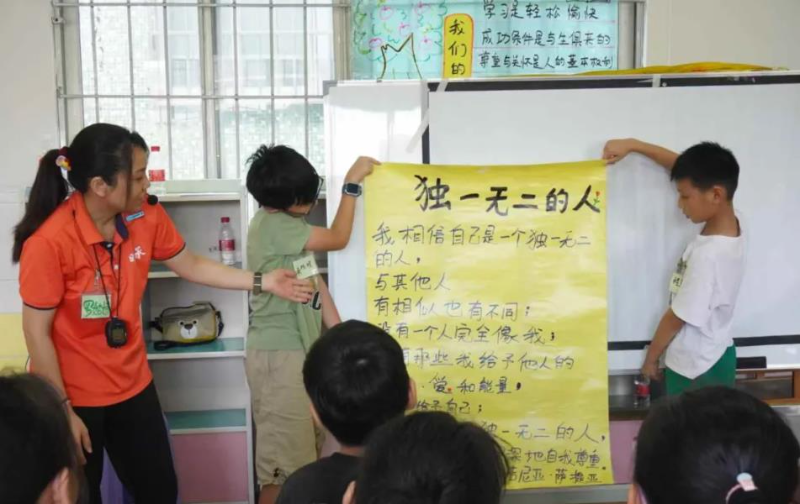 学习是轻松愉快
成功条件是与生俱来的
尊重与关怀是人的基本权利
我们的
独一无二的人
我相信自己是一个独一无二
的人,
与其他人
有相似也有不同;
没有一个人完全像我;
那些我给予他人的
爱和能量,
给予自己;
独一无二的人,
地自我尊重
尼亚·萨提亚